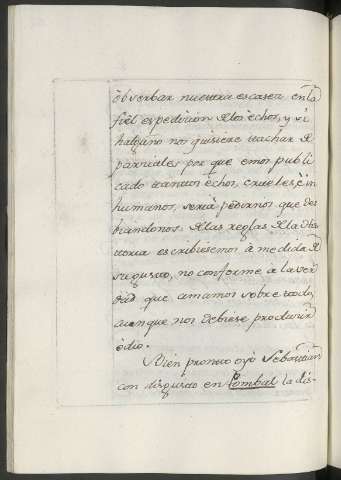 òbserbar nuestra escasea en la
fiel espedicion de los èchos, y si
halguno nos quisiere tachar de
parciales por que emos publi
cado tantos èchos, crueles è in
humanos, seria pedirnos que des
biandonos de las reglas de la His
toria escribiesemos à medida de
su gusto, no conforme à la ver
dad que amamos sobre todo,
aunque nos debiese producir
òdio.
Bien pronto oyò Sebastian
con disgusto en Pombal la dis-